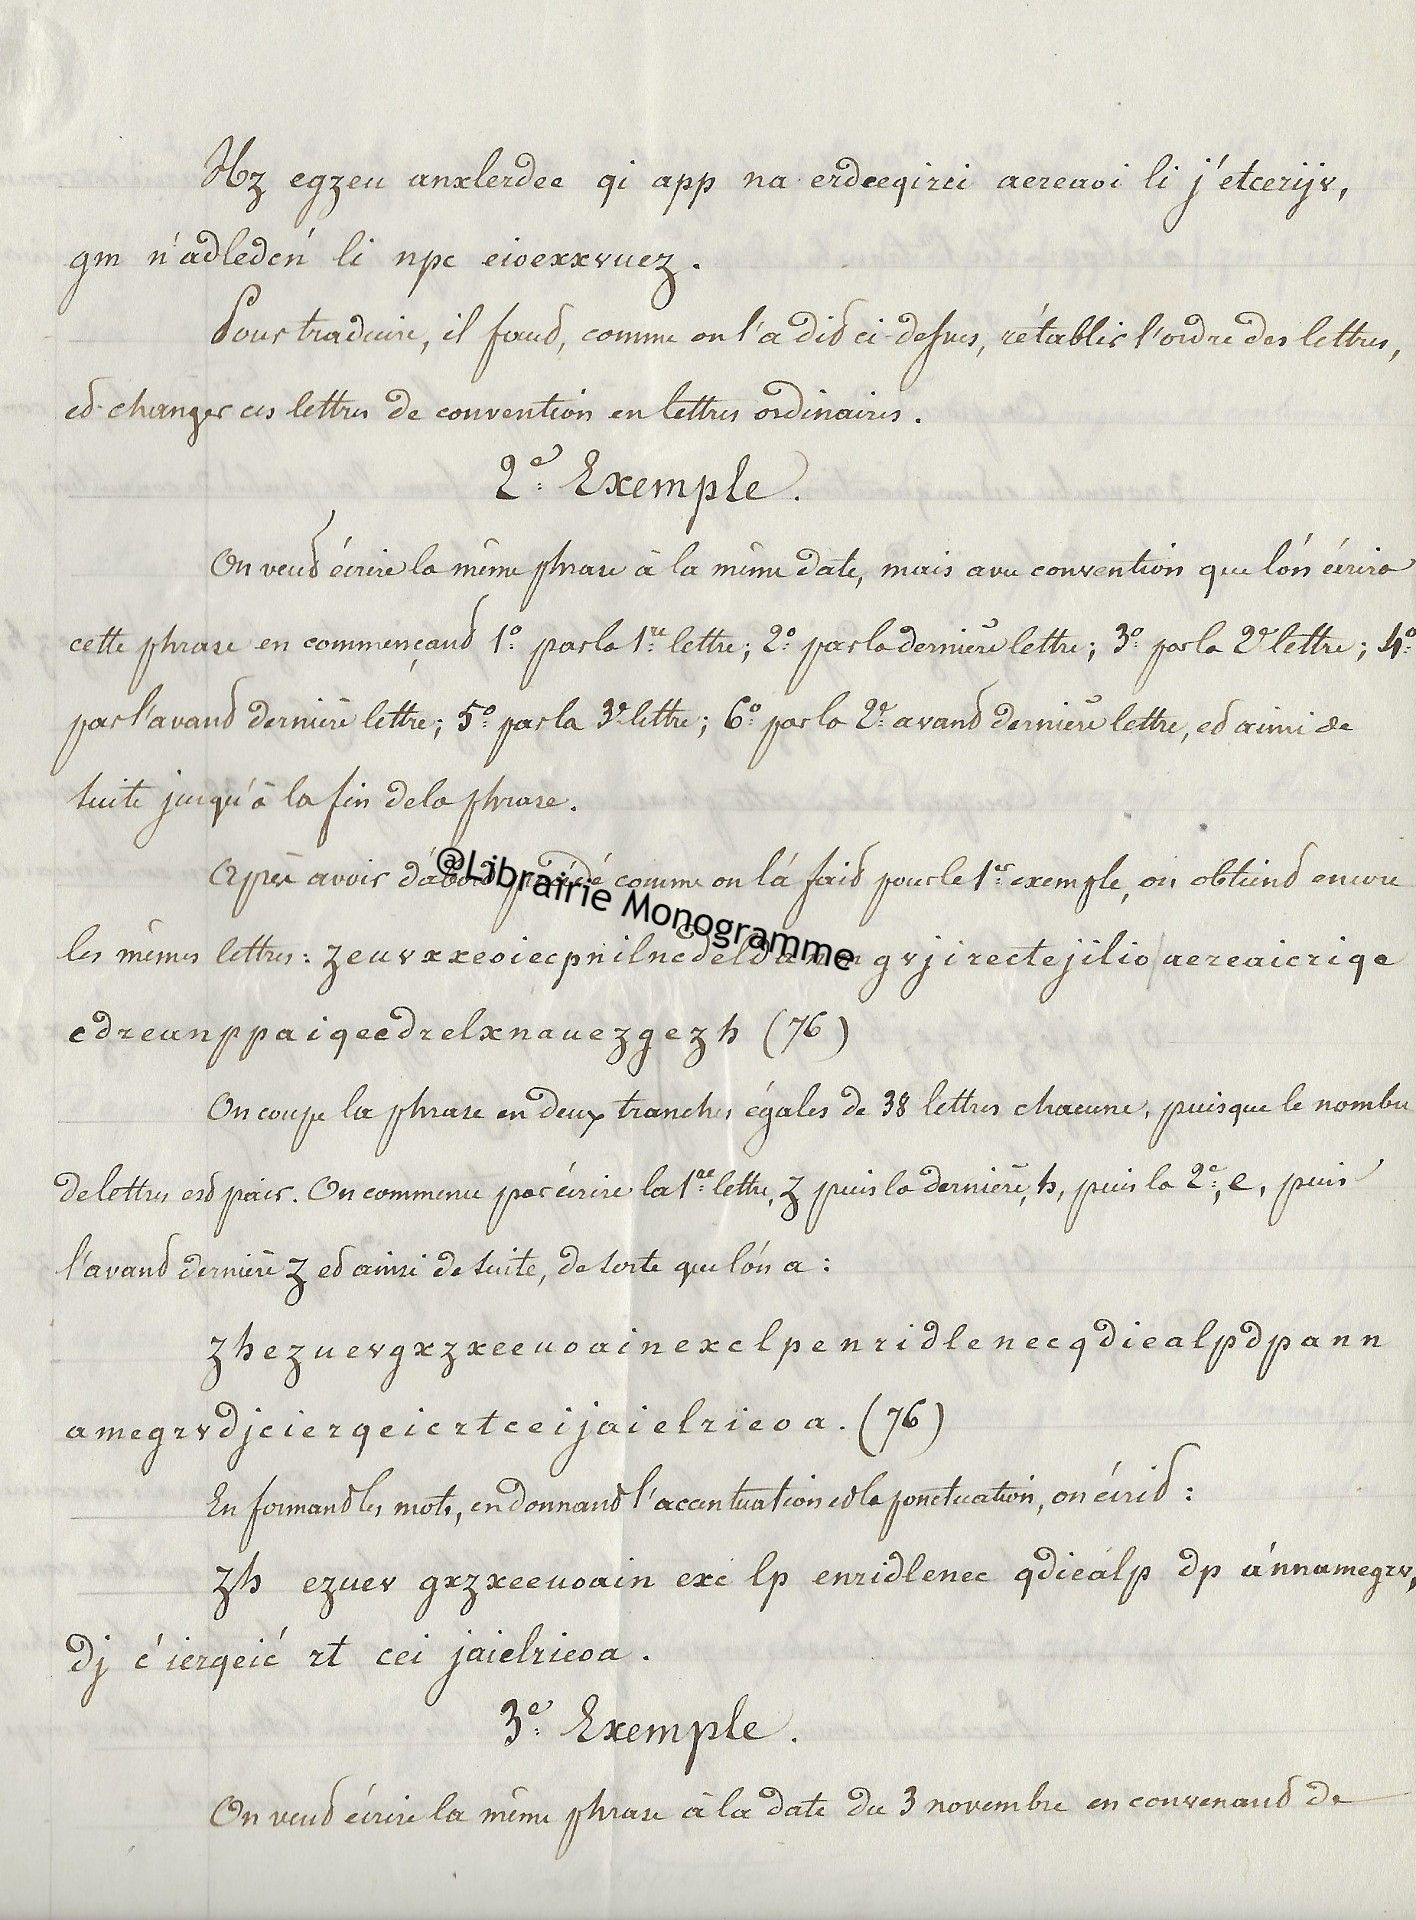 Hz egzeu anxlerdee qi app na erdceqirci aereaoi li j'etcerijv,
gm n'adledcń li npc eioexxvuez.
Pour traduire, il faut, comme on l'a dit ci-dessus, rétablir l'ordre des lettres,
et changer ces lettres de convention en lettres ordinaires.
2e. Exemple.
On veut écrire la même phrase à la même date, mais avec convention que l'on écrira
cette phrase en commençant 1o. par la 1re lettre; 2o. par la dernière lettre; 3o. par la 2e lettre; 4o.
par l'avant dernière lettre; 5o. par la 3e lettre; 6o par la 2e. avant dernière lettre, et ainsi de
suite jusqu'à la fin de la phrase.
Après avoir d'abord procédé comme on l'a fait pour le 1er exemple, on obtient encore
les mêmes lettres: zeuvxxeoiecpnilncdeldanmgvjirectejilioaereaicriqe
cdreanppaiqeedrelxnauezgezh (76)
On coupe la phrase en deux tranches égales de 38 lettres chacune, puisque le nombre
de lettres est pair. On commence par écrire la 1re lettre, z puis la dernière, h, puis la 2e, e, puis
l'avant dernière z et ainsi de suite, de sorte que l'on a:
zhezuevgxzxeeuoainexclpenridlenecqdiealpdpann
amegrvdjcierqeicrtceijaielrieoa. (76)
En formant les mots, en donnant l'accentuation et la ponctuation, on écrit:
zh ezuev gxzxeeuoain exc lp enridlenec qdiéalp dp ánnamegrv,
dj c'ierqeić rt cei jaielrieoa.
3e. Exemple.
On veut écrire la même phrase à la date du 3 novembre en convenant de
@Librairie Monogramme